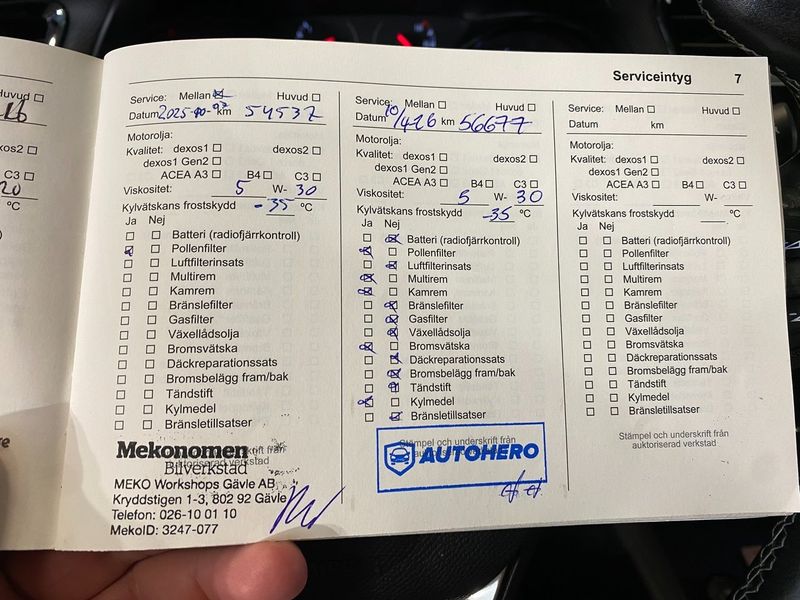 Serviceintyg 7
Huvud
dexos2
C3
°C
Service: Mellan Huvud
Datum 2025-10-03 km 54537
Motorolja:
Kvalitet: dexos1 dexos2
dexos1 Gen2
ACEA A3 B4 C3
Viskositet: 5 W- 30
Kylvätskans frostskydd -35 °C
Ja Nej
Batteri (radiofjärrkontroll)
Pollenfilter
Luftfilterinsats
Multirem
Kamrem
Bränslefilter
Gasfilter
Växellådsolja
Bromsvätska
Däckreparationssats
Bromsbelägg fram/bak
Tändstift
Kylmedel
Bränsletillsatser
Mekonomen
Bilverkstad
MEKO Workshops Gävle AB
Kryddstigen 1-3, 802 92 Gävle
Telefon: 026-10 01 10
MekoID: 3247-077
Service: Mellan Huvud
Datum 10/426 km 56677
Motorolja:
Kvalitet: dexos1 dexos2
dexos1 Gen2
ACEA A3 B4 C3
Viskositet: 5 W- 30
Kylvätskans frostskydd -35 °C
Ja Nej
Batteri (radiofjärrkontroll)
Pollenfilter
Luftfilterinsats
Multirem
Kamrem
Bränslefilter
Gasfilter
Växellådsolja
Bromsvätska
Däckreparationssats
Bromsbelägg fram/bak
Tändstift
Kylmedel
Bränsletillsatser
Stämpel och underskrift från
AUTOHERO
Service: Mellan Huvud
Datum km
Motorolja:
Kvalitet: dexos1 dexos2
dexos1 Gen2
ACEA A3 B4 C3
Viskositet: W-
Kylvätskans frostskydd °C
Ja Nej
Batteri (radiofjärrkontroll)
Pollenfilter
Luftfilterinsats
Multirem
Kamrem
Bränslefilter
Gasfilter
Växellådsolja
Bromsvätska
Däckreparationssats
Bromsbelägg fram/bak
Tändstift
Kylmedel
Bränsletillsatser
Stämpel och underskrift från
auktoriserad verkstad